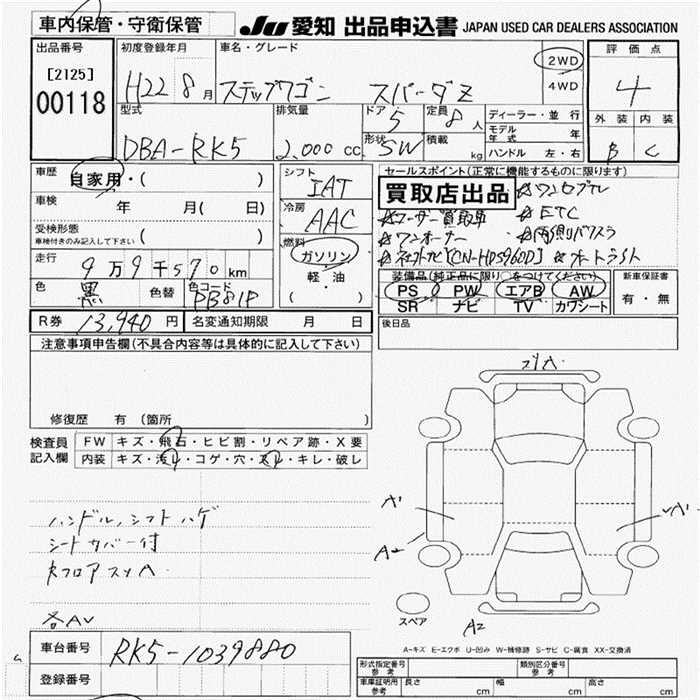 車内保管・守衛保管
JU 愛知 出品申込書 JAPAN USED CAR DEALERS ASSOCIATION
出品番号 初度登録年月 車名・グレード 評価点
[2125] H22 8月 ステップワゴン スパーダZ 2WD 4
00118 4WD
型式 排気量 ドア 5 定員 8人 ディーラー・並行 外装 内装
DBA-RK5 2,000 cc 形状 SW 積載 kg モデル年式 年 B C
ハンドル 左・右
車歴 自家用・( ) シフト IAT セールスポイント(正常に機能するものに限ります)
車検 年 月( 日) 冷房 AAC 買取店出品 ☆ワンセグTV
受検形態 ( ) ☆ユーザー買取車 ☆ETC
車検付きのみ記入して下さい 燃料 ☆ワンオーナー
走行 9万9千570km ガソリン
色 黒 色替 色コード 軽・油 装備品(純正品に限り○をつけてください) 新車保証書
( ) PS PW エアB AW 有・無
SR ナビ TV カワシート
R券 13,940円 名変通知期限 月 日 後日品
注意事項申告欄(不具合内容等は具体的に記入して下さい)
修復歴 有 (箇所 )
検査員 FW キズ・飛石・ヒビ割・リペア跡・X要
記入欄 内装 キズ・汚レ・コゲ・穴・スレ・キレ・破レ
ハンドル、シフトハゲ
シートカバー付
A1
A2
各AU
スペア A2
A-キズ E-エクボ U-凹み W-補修跡 S-サビ C-腐食 XX-交換済
車台番号 RK5-1039880
登録番号
形式指定番号 参考 類別区分番号 参考
車庫証明用 参考 長さ cm 幅 cm 高さ cm